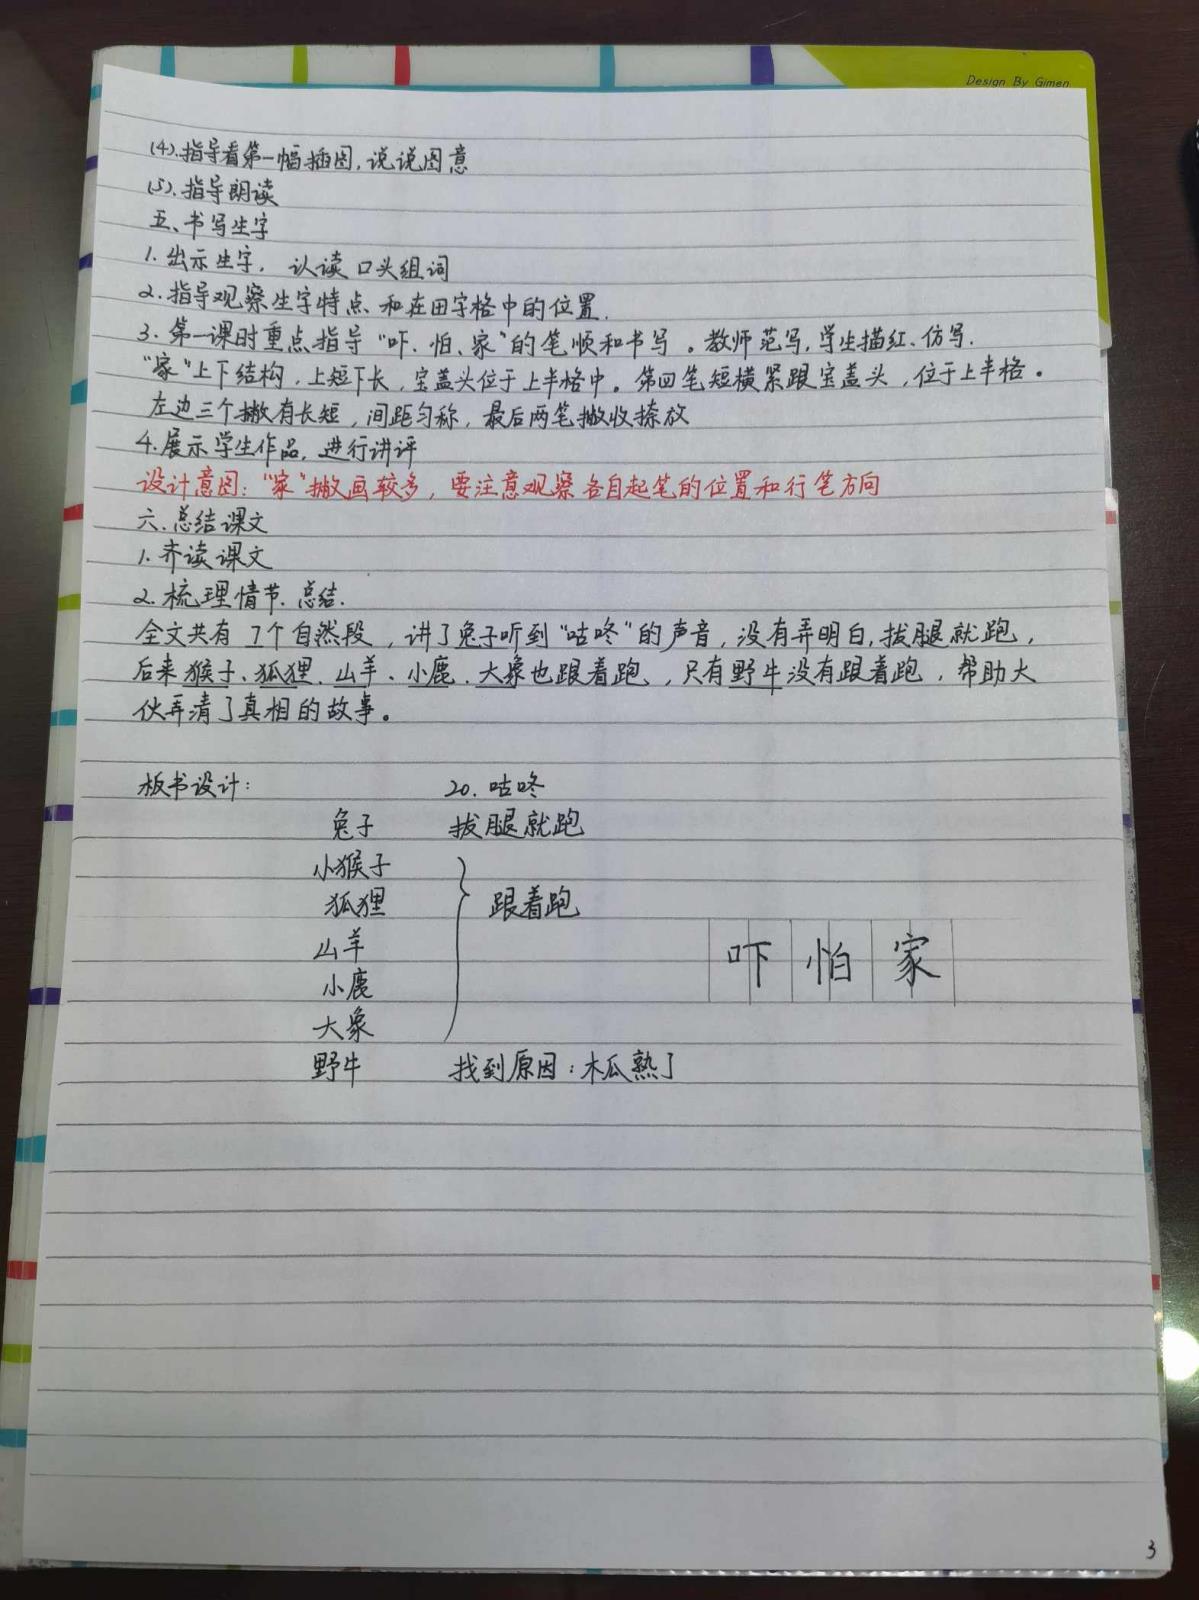 Design By Gimen
(4).指导看第一幅插图,说说图意
(5).指导朗读
五、书写生字
1.出示生字, 认读 口头组词
2.指导观察生字特点 和在田字格中的位置.
3.第一课时重点指导“吓、怕、家”的笔顺和书写。教师范写,学生描红、仿写.
“家”上下结构,上短下长,宝盖头位于上半格中。第四笔短横紧跟宝盖头,位于上半格。
左边三个撇有长短,间距匀称,最后两笔撇收捺放
4.展示学生作品,进行讲评
设计意图:“家”撇画较多,要注意观察各自起笔的位置和行笔方向
六.总结课文
1.齐读课文
2.梳理情节.总结.
全文共有7个自然段,讲了兔子听到“咕咚”的声音,没有弄明白,拔腿就跑,
后来猴子、狐狸、山羊、小鹿、大象也跟着跑,只有野牛没有跟着跑,帮助大
伙弄清了真相的故事。
板书设计: 20.咕咚
兔子 拔腿就跑
小猴子
狐狸 跟着跑
山羊 吓 怕 家
小鹿
大象
野牛 找到原因:木瓜熟了
3